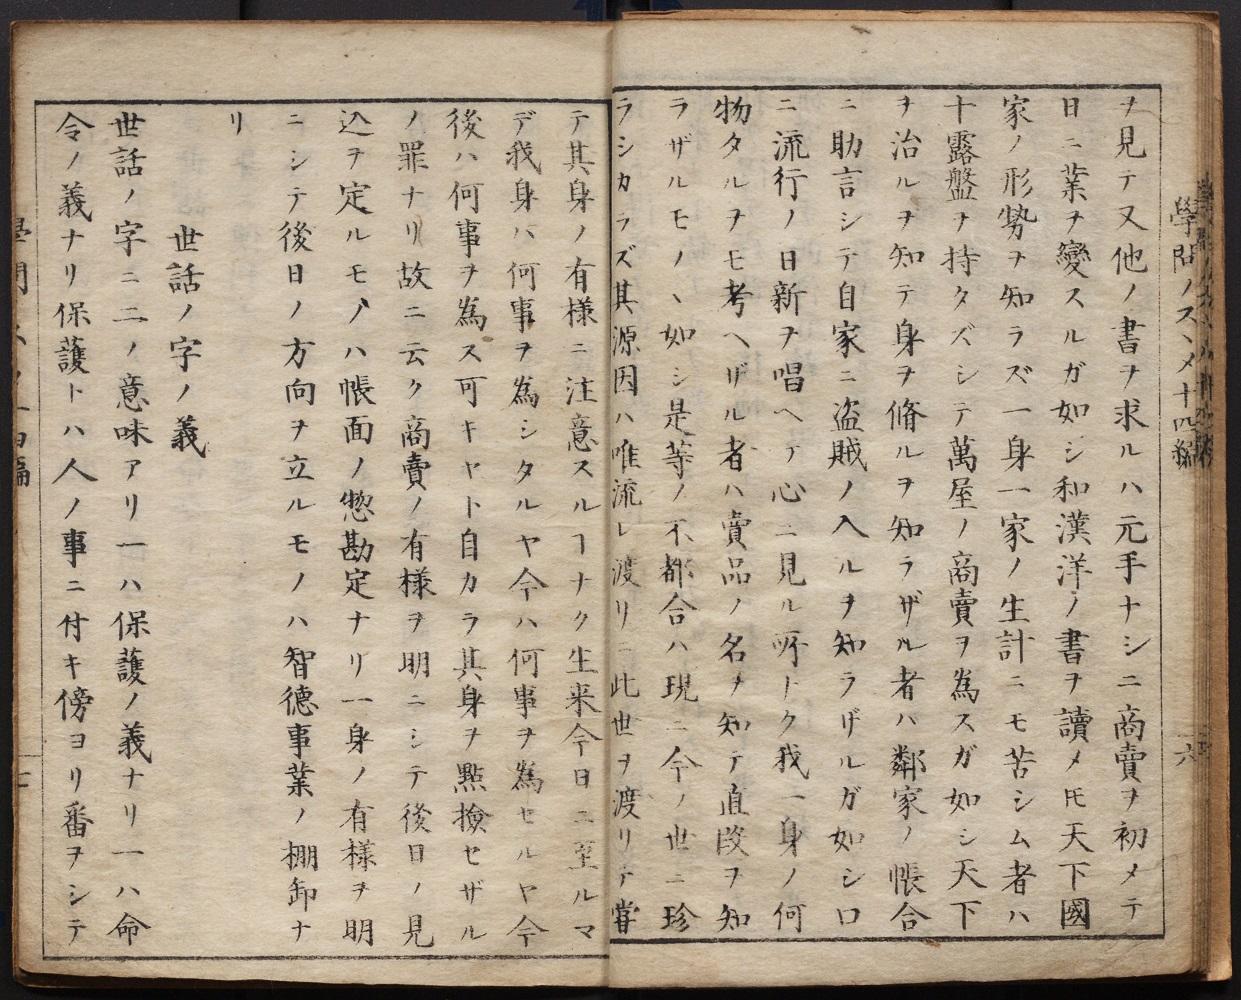 學問ノスヽメ十四編
六
ヲ見テ又他ノ書ヲ求ルハ元手ナシニ商賣ヲ初メテ
日ニ業ヲ變スルガ如シ和漢洋ノ書ヲ讀メ𪜈天下國
家ノ形勢ヲ知ラズ一身一家ノ生計ニモ苦シム者ハ
十露盤ヲ持タズシテ萬屋ノ商賣ヲ為スガ如シ天下
ヲ治ルヲ知テ身ヲ脩ルヲ知ラザル者ハ鄰家ノ帳合
ニ助言シテ自家ニ盗賊ノ入ルヲ知ラザルガ如シ口
ニ流行ノ日新ヲ唱ヘテ心ニ見ル所ナク我一身ノ何
物タルヲモ考ヘザル者ハ賣品ノ名ヲ知テ直段ヲ知
ラザルモノヽ如シ是等ノ不都合ハ現ニ今ノ世ニ珍
ラシカラズ其源因ハ唯流レ渡リニ此世ヲ渡リテ嘗
テ其身ノ有様ニ注意スルヿナク生来今日ニ至ルマ
デ我身ハ何事ヲ為シタルヤ今ハ何事ヲ為セルヤ今
後ハ何事ヲ為ス可キヤト自カラ其身ヲ點撿セザル
ノ罪ナリ故ニ云ク商賣ノ有様ヲ明ニシテ後日ノ見
込ヲ定ルモノハ帳面ノ惣勘定ナリ一身ノ有様ヲ明
ニシテ後日ノ方向ヲ立ルモノハ智德事業ノ棚卸ナ
リ
世話ノ字ノ義
世話ノ字ニ二ノ意味アリ一ハ保護ノ義ナリ一ハ命
令ノ義ナリ保護トハ人ノ事ニ付キ傍ヨリ番ヲシテ